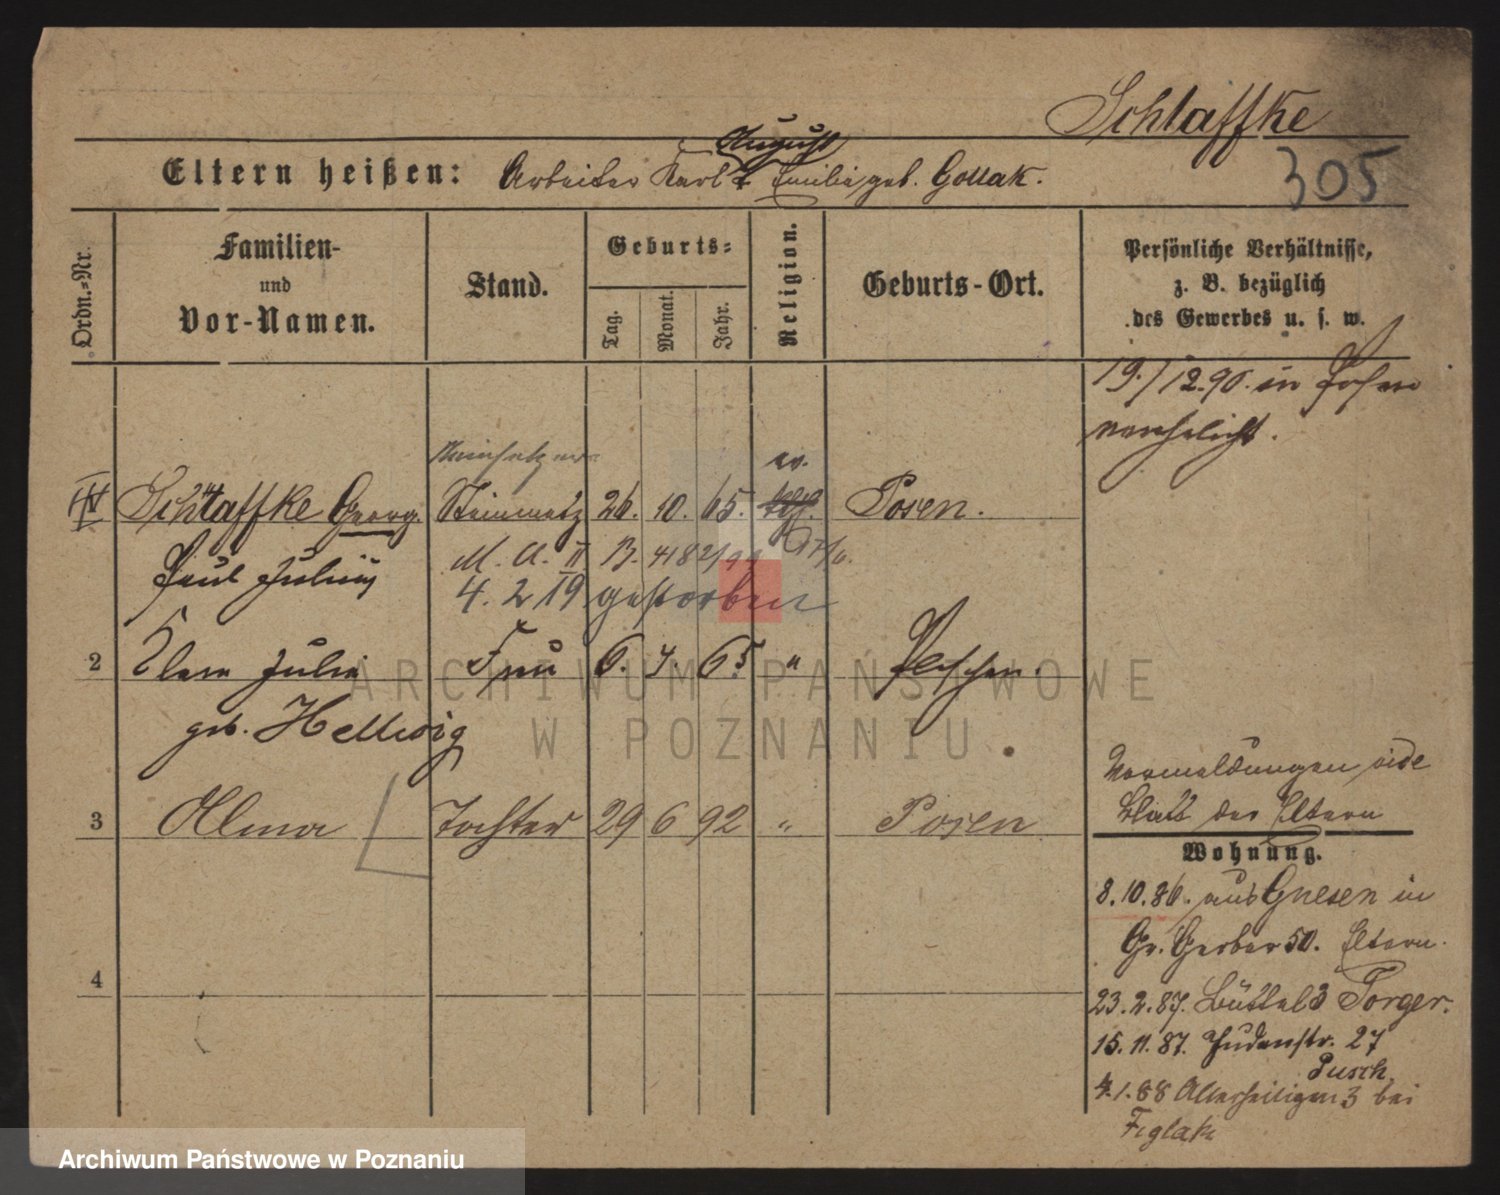 Schlaffke
305
August
Eltern heißen: Arbeiter Karl & Emilie geb. Gollak.
Ordn.-Nr.
Familien- und Vor-Namen.
Stand.
Geburts-
Tag.
Monat.
Jahr.
Religion.
Geburts-Ort.
Persönliche Verhältnisse,
z. B. bezüglich
des Gewerbes u. s. w.
19./12.90. in Posen
verehelicht.
ev.
Schlaffke Georg. Steinmetz 26. 10. 65. kath. Posen.
Paul Julius
M. A. II B. 4182/99
4. 2 19 gestorben
2 Clara Julie Frau 6. 7. 65 " Pleschen
geb. Hellwig
3 Alma Tochter 29 6 92 " Posen
Vormeldungen vide
Blatt der Eltern
Wohnung.
8.10.86. aus Gnesen in
Gr. Gerber 50. Eltern.
23.2.87. Büttel 3 Torger.
15.11.87. Judenstr. 27
Pusch.
4.1.88 Allerheiligen 3 bei
Figlak
4
ARCHIWUM PAŃSTWOWE
W POZNANIU
Archiwum Państwowe w Poznaniu